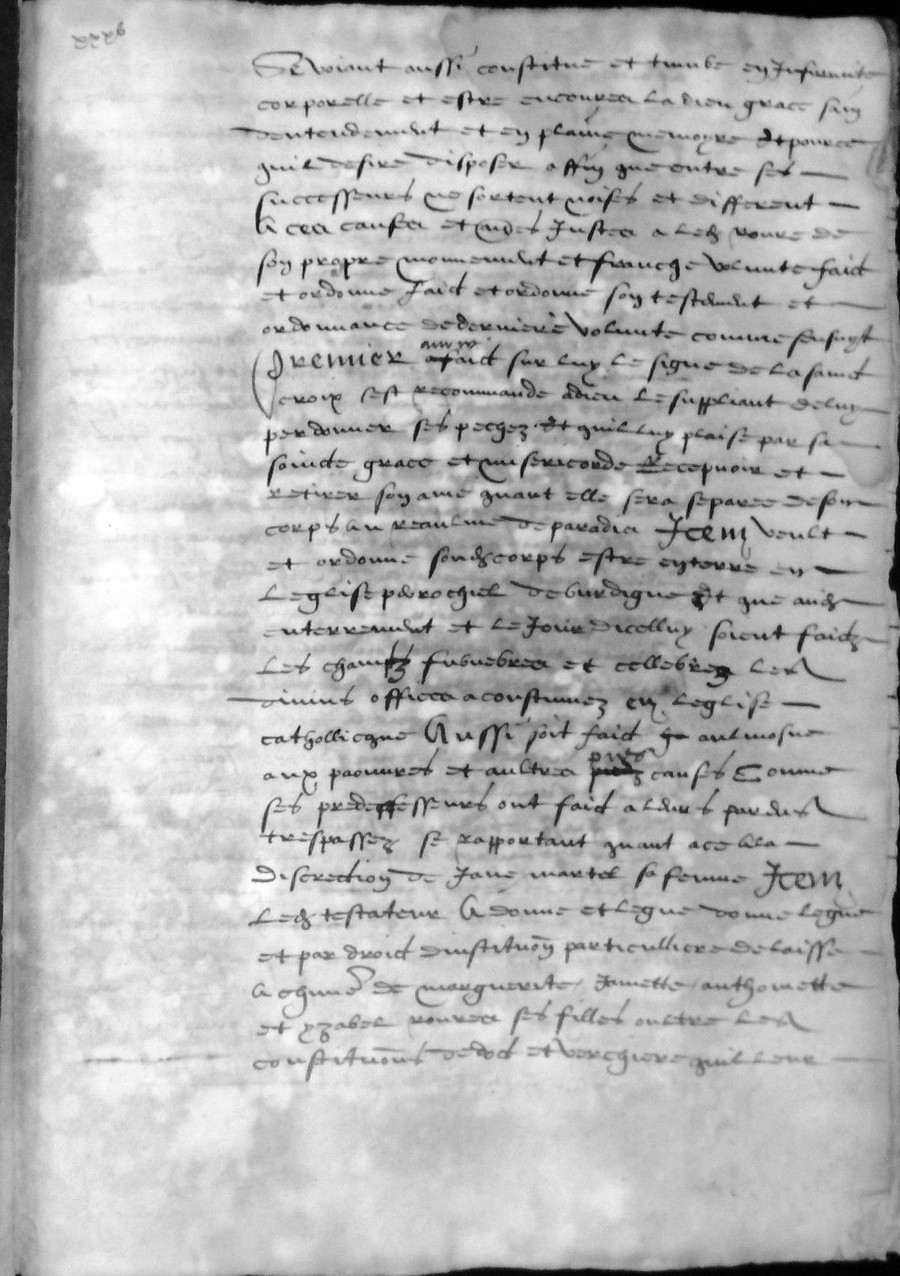 xxxvi
Se voiant aussi constitue et tumbe en Infirmite
corporelle et estre encoures la dieu grace sain
dentendement et en plaine memoyre Et pource
quil desire disposer affin que entre ses
successeurs ne sortent noises et different
A ces causes et Justes a led roure de
son propre mouvement et franche volunte faict
et ordonne faict et ordonne son testament et
ordonnance de derniere volunte comme sensuyt
Premier faict sur luy le signe de la saincte
croix sest recommande a dieu le suppliant de luy
perdonner ses pechez Et quil luy plaise par sa
saincte grace et misericorde Recepvoir et
retirer son ame quant elle sera separee de son
corps au reaulme de paradis Item veult
et ordonne sond corps estre enterre en
leglise parrochiel de burdigne Et que aud
enterrement et le Jour dicelluy soient faictz
les chantz funebres et cellebrez les
divins offices acoustumez en leglise
cathollicque Aussi soit faict aulmosne
aux paouvres et aultres causes Comme
ses predessesseurs ont faict a leurs parens
trespassez se rapportant quant ace a la
discrection de Jane martel sa femme Item
Led testateur A donne et legue donne legue
et par droict dinstitution particulliere delaisse
A chune de marguerite Jamette anthomette
et yzabel roures ses filles oultre les
constitutions de dot et verchiere quil leur